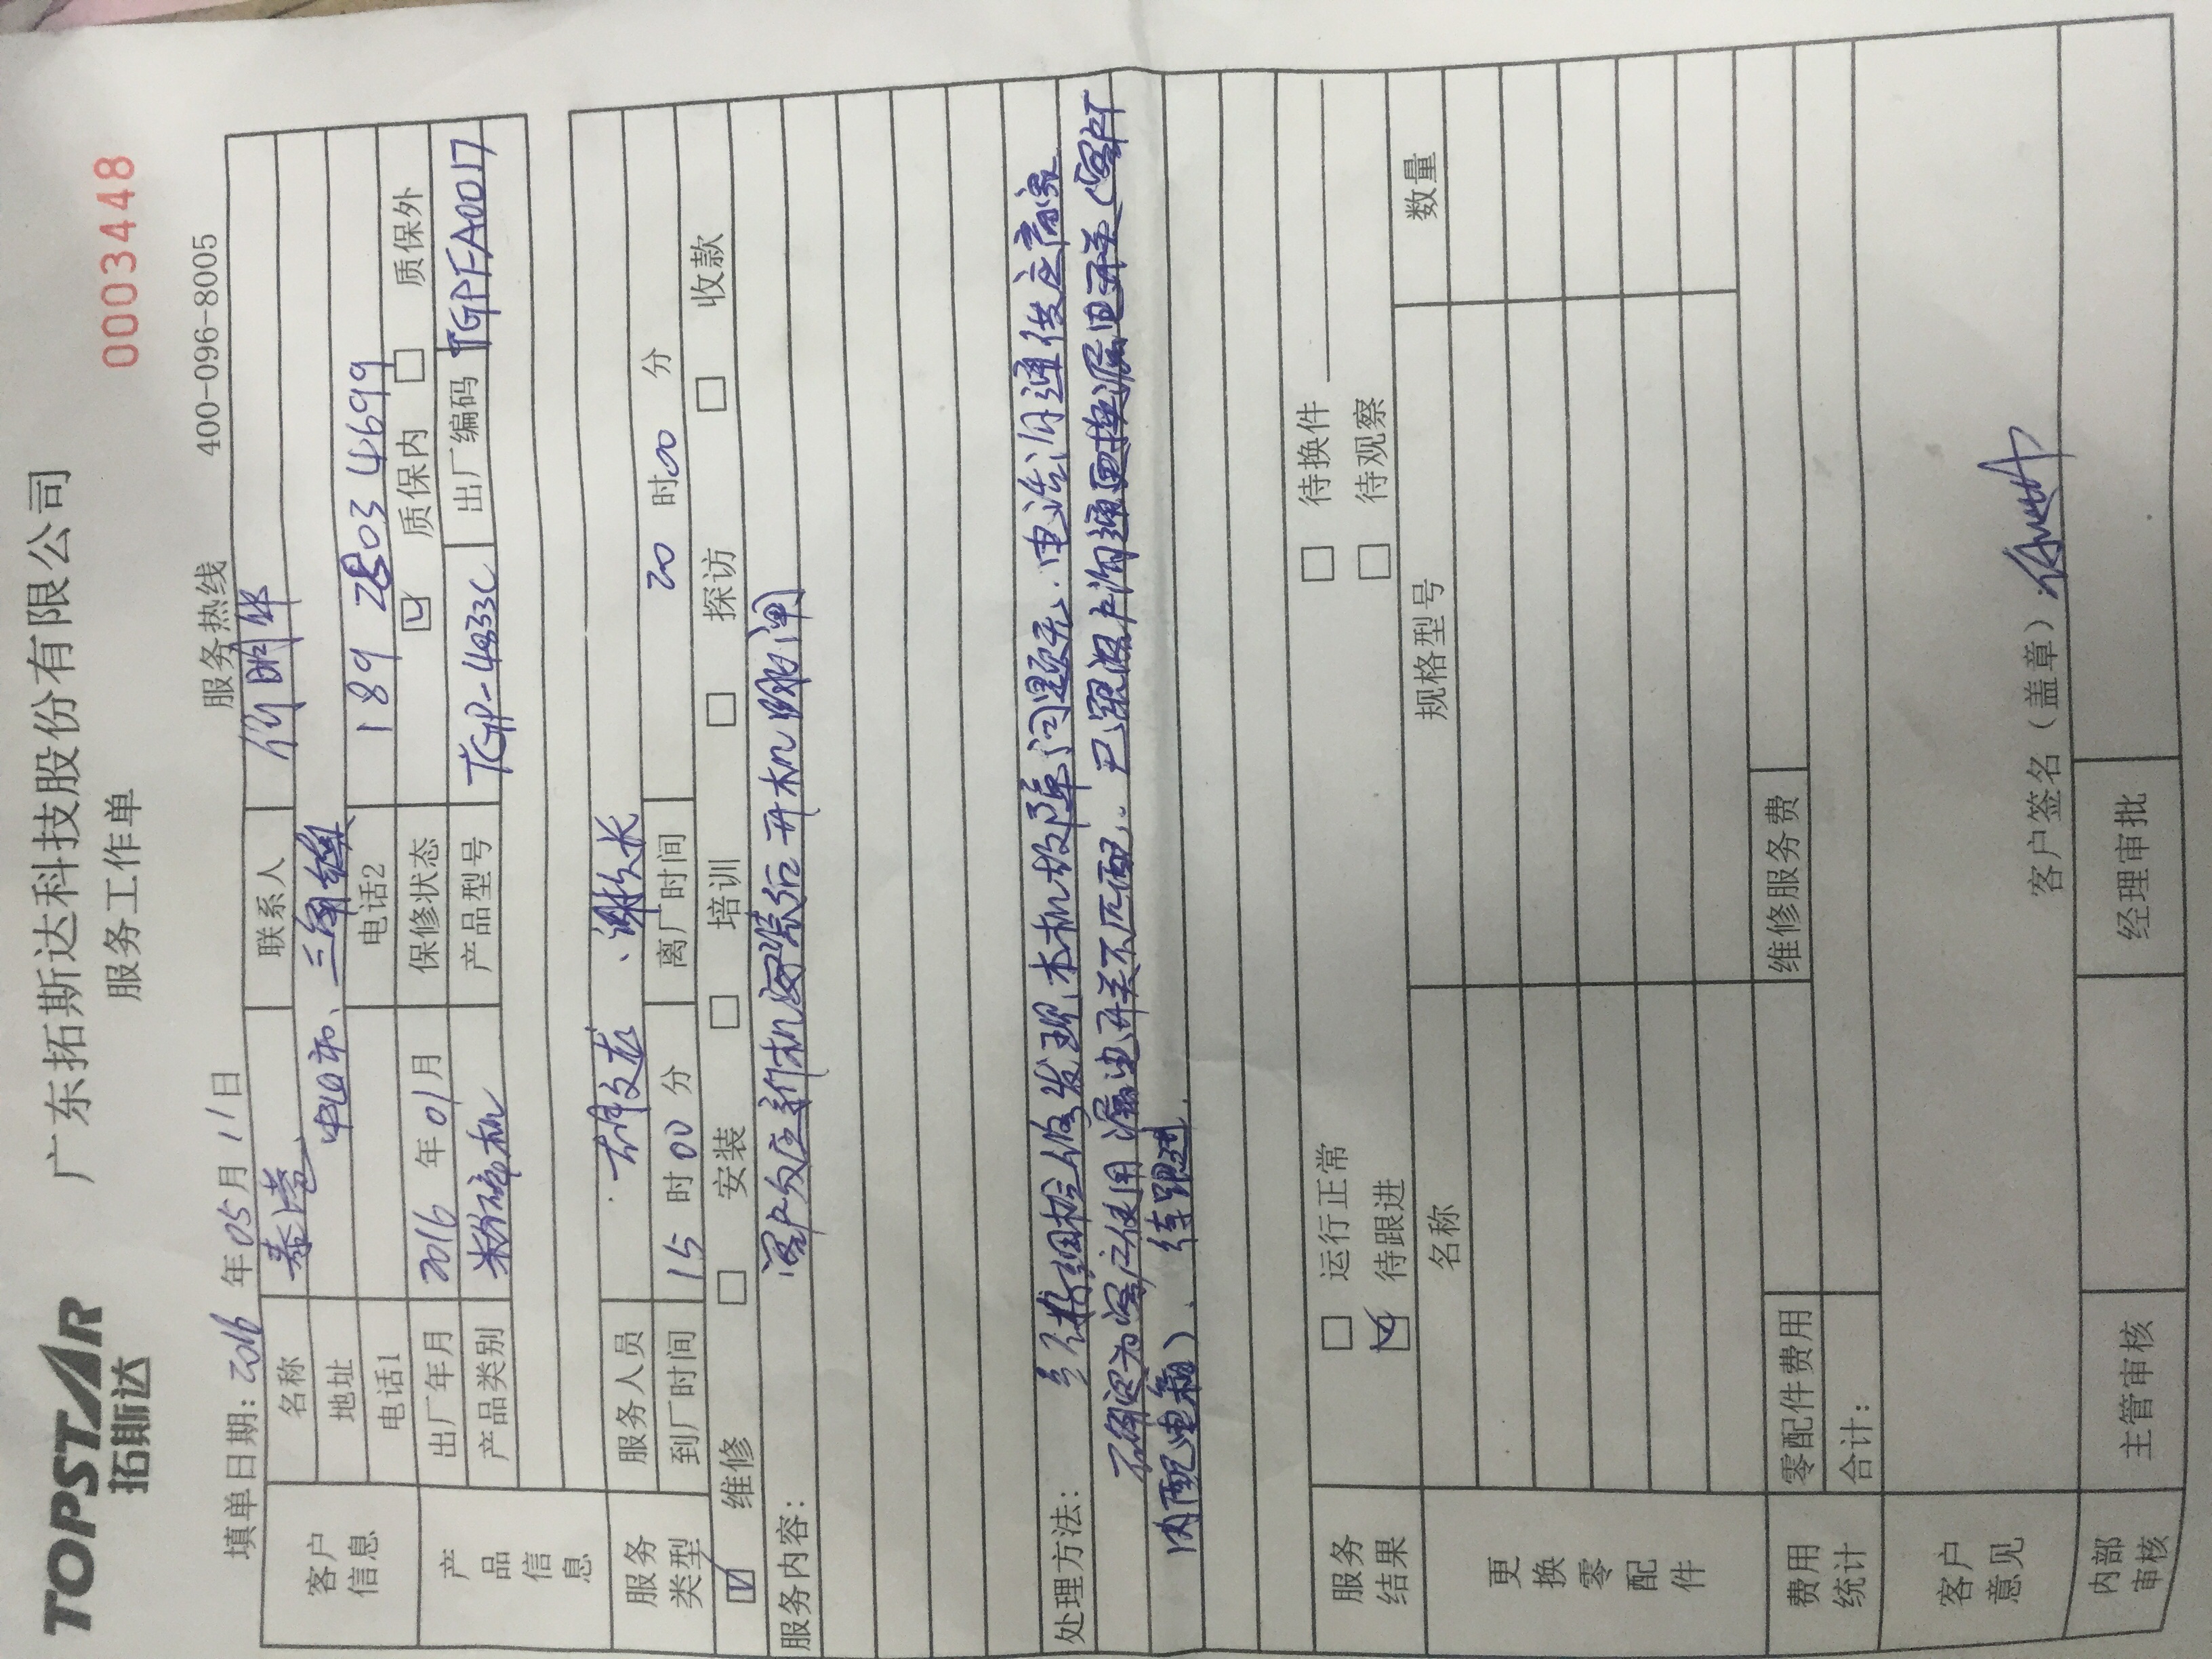 TOPSTAR
拓斯达
广东拓斯达科技股份有限公司
服务工作单
0003448
填单日期：2016 年 05 月 11 日 服务热线 400-096-8005
客户信息
名称 联系人 何明华
地址 中山市、三角镇
电话1 电话2 189 2803 4699
产品信息
出厂年月 2016 年 01 月 保修状态 ☑ 质保内 □ 质保外
产品类别 粉碎机 产品型号 TGP-4833C 出厂编码 TGPFA0017
服务类型
服务人员
到厂时间 15 时 00 分 离厂时间 20 时 00 分
☑ 维修 □ 安装 □ 培训 □ 探访 □ 收款
服务内容：
客户反应新机安装后开机跳闸
处理方法：
经仔细检修发现本机故障问题无.电话沟通供应商家
确定为客户使用漏电开关不匹配。已跟客户沟通更换漏电开关（客户厂
内配电箱）、待跟进.
服务结果
□ 运行正常 □ 待换件
☑ 待跟进 □ 待观察
更换零配件
名称 规格型号 数量
费用统计
零配件费用 维修服务费
合计：
客户意见
客户签名（盖章）：
内部审核
主管审核 经理审批